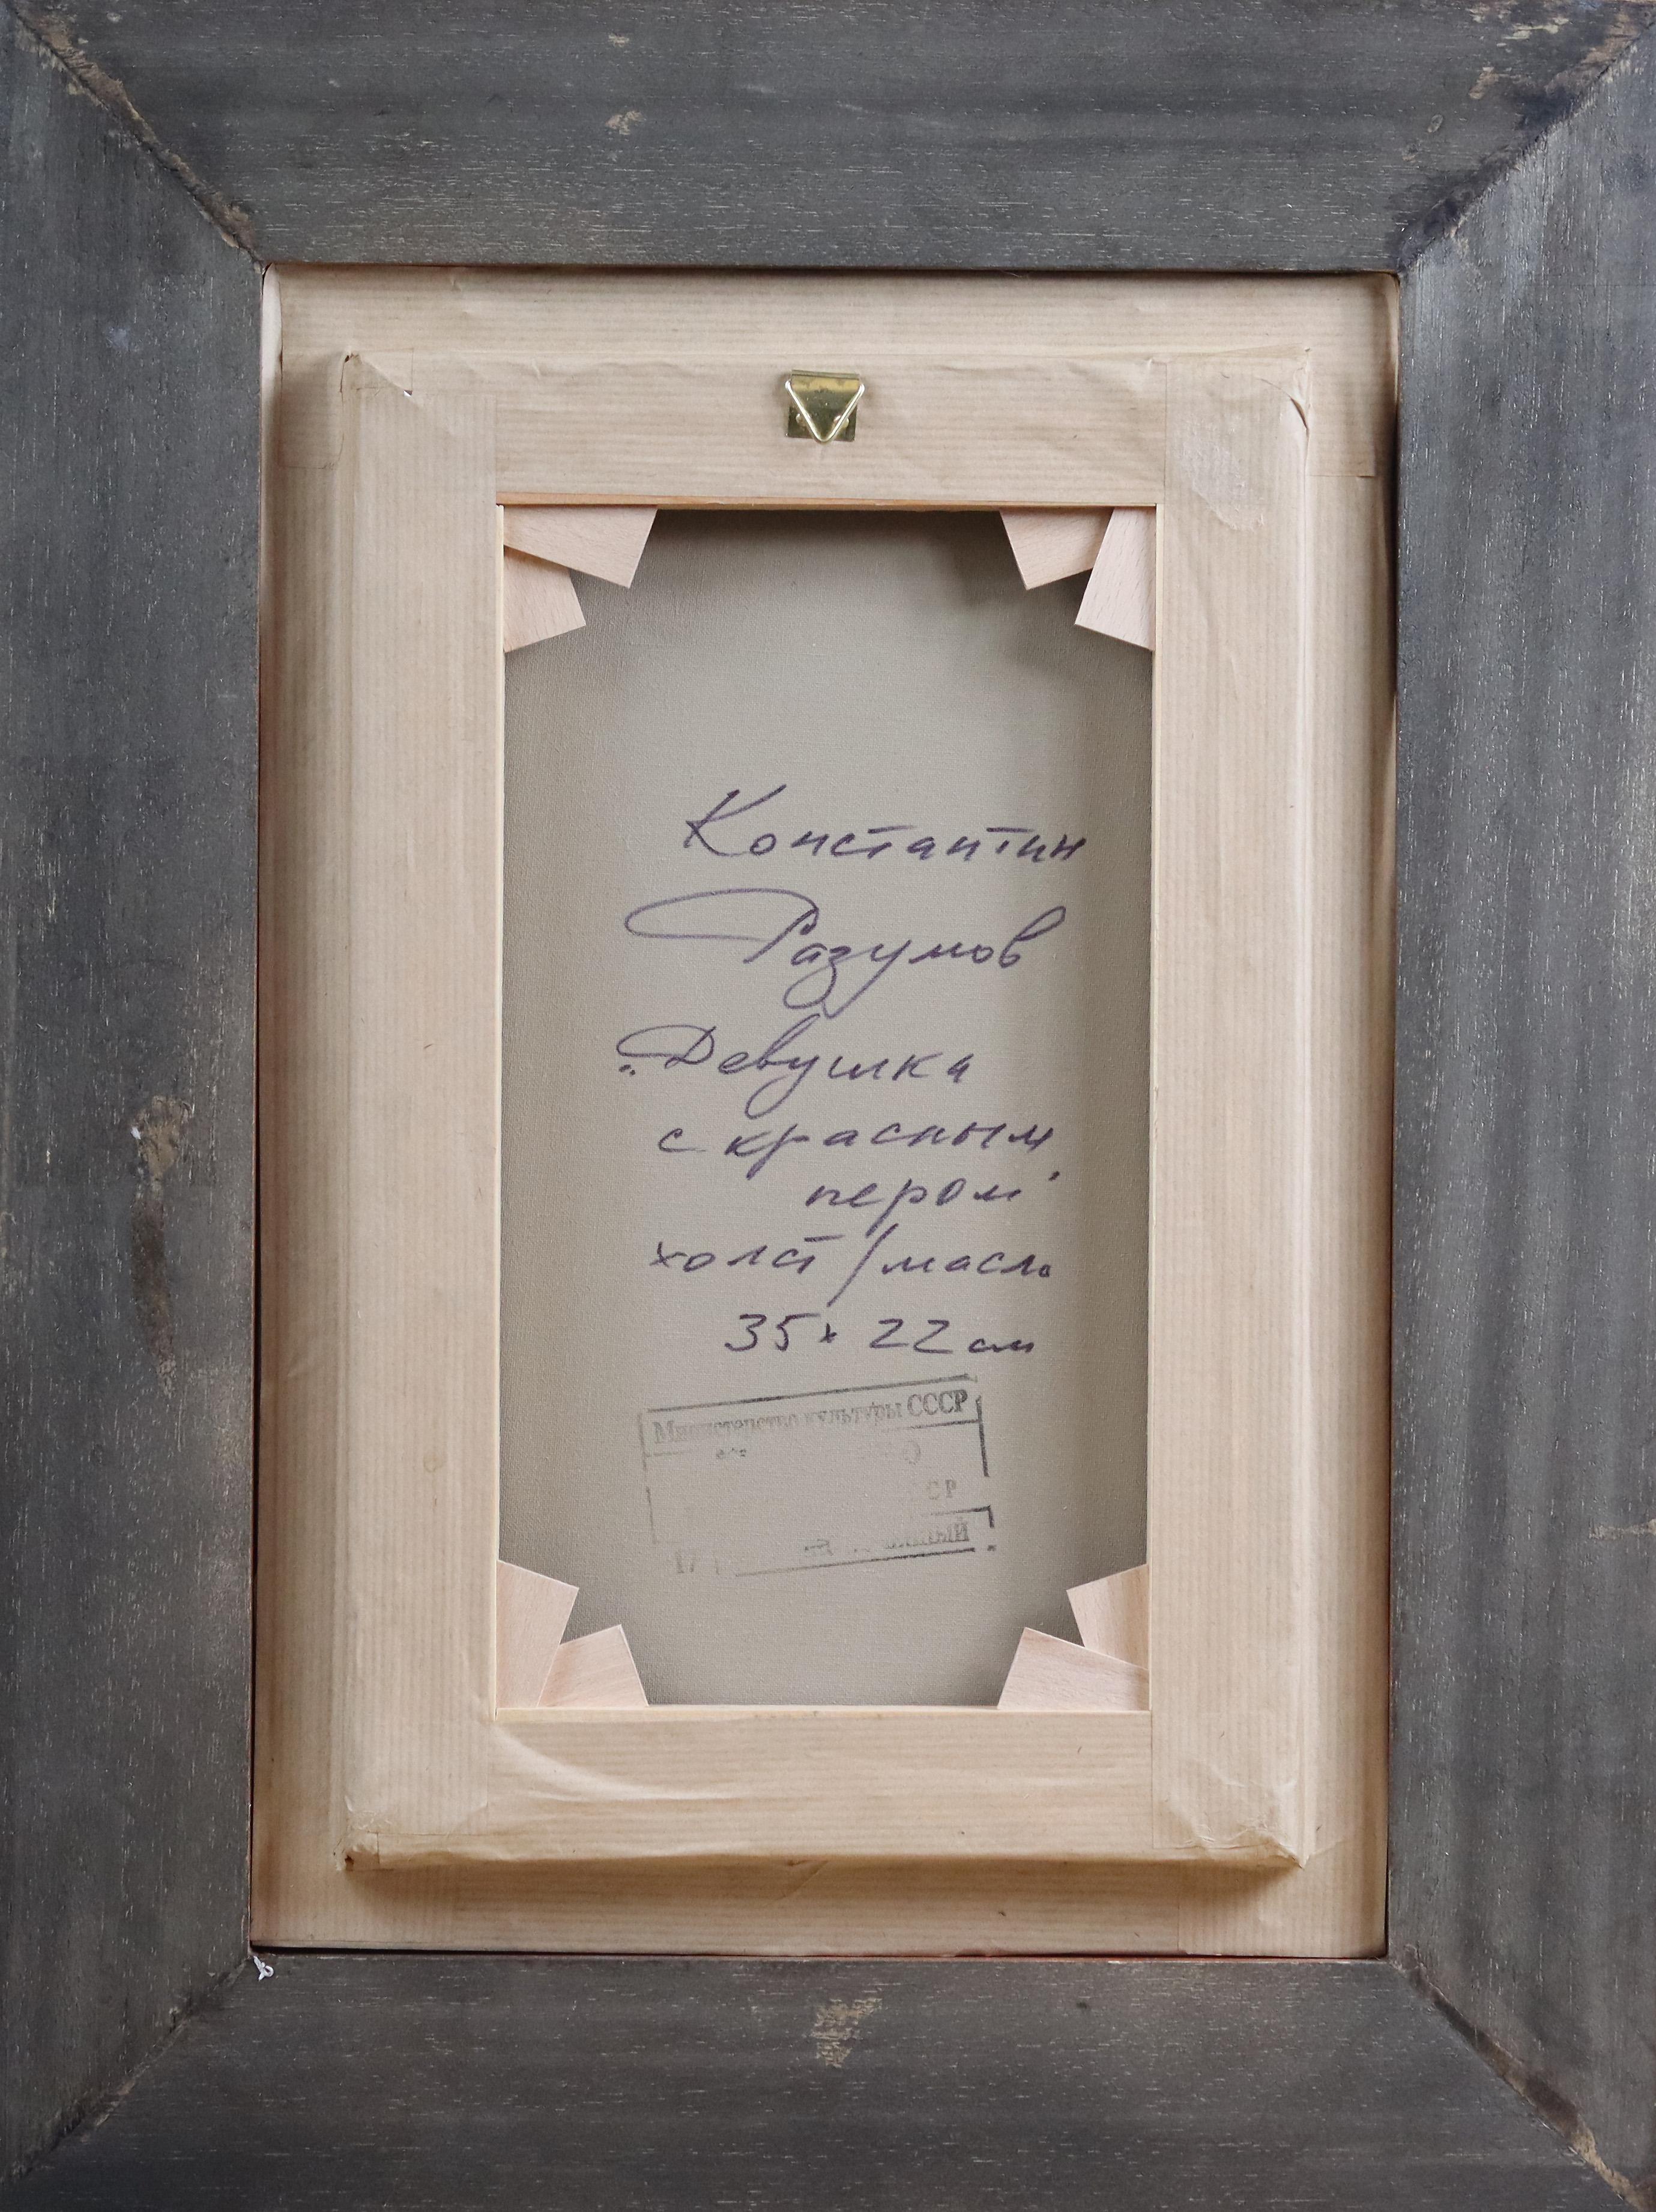 Константин
Разумов
„Девушка
с красным
пером“
холст / масло
35 х 22 см
Министерство культуры СССР